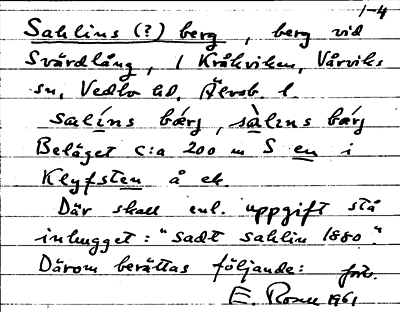 1-4
Sahlins (?) berg, berg vid
Svärdlång, i Kråkviken, Vårviks
sn, Vedbo hd, Älvsb. l.
salíns bærj, sàlins bærj
Beläget c:a 200 m S en i
Klyfsten å ek.
Där skall enl. uppgift stå
inhugget: "Sadt Sahlin 1880".
Därom berättas följande: forts.
E. Rosell 1961